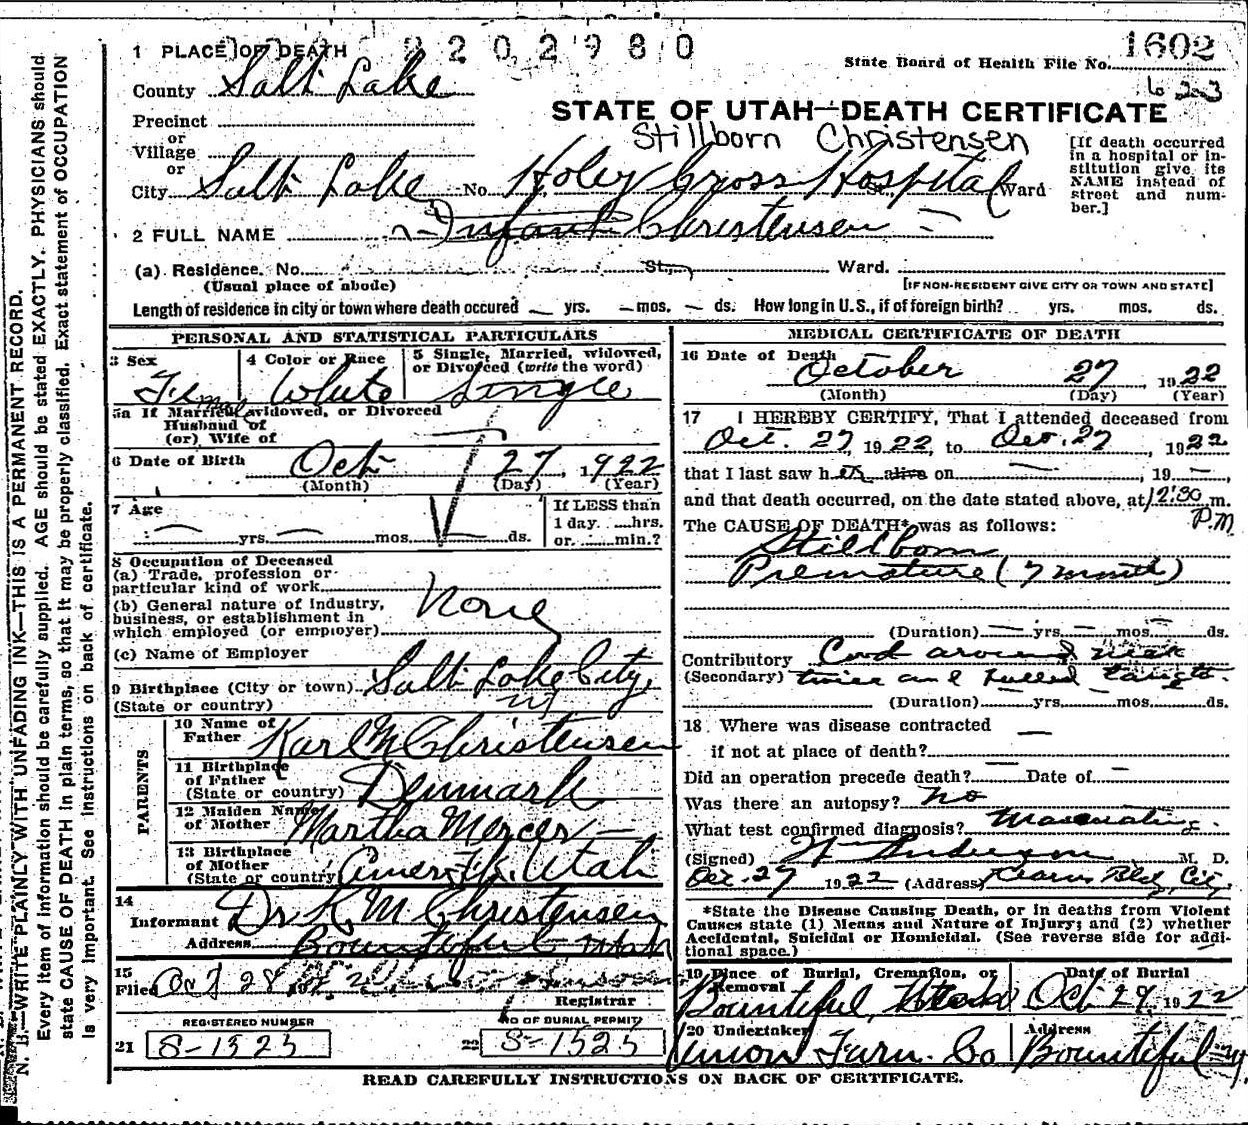 1 PLACE OF DEATH 2202980 1602
State Board of Health File No.
County Salt Lake 623
STATE OF UTAH—DEATH CERTIFICATE
Precinct
or
Village
or
Stillborn Christensen
City Salt Lake No. Holey Cross Hospital St. Ward
[If death occurred in a hospital or in-
stitution give its
NAME instead of
street and num-
ber.]
2 FULL NAME Infant Christensen
(a) Residence. No. St., Ward.
(Usual place of abode) [IF NON-RESIDENT GIVE CITY OR TOWN AND STATE]
Length of residence in city or town where death occured — yrs. — mos. — ds. How long in U.S., if of foreign birth? yrs. mos. ds.
PERSONAL AND STATISTICAL PARTICULARS
3 Sex 4 Color or Race 5 Single, Married, widowed,
or Divorced (write the word)
Female White Single
5a If Married, widowed, or Divorced
Husband of
(or) Wife of
6 Date of Birth Oct 27, 1922
(Month) (Day) (Year)
7 Age If LESS than
1 day ....hrs.
— yrs. — mos. ds. or ....min.?
8 Occupation of Deceased
(a) Trade, profession or
particular kind of work
(b) General nature of industry,
business, or establishment in
which employed (or employer) None
(c) Name of Employer
9 Birthplace (City or town) Salt Lake City,
(State or country)
PARENTS
10 Name of
Father Karl M Christensen
11 Birthplace
of Father
(State or country) Denmark
12 Maiden Name
of Mother Martha Mercer —
13 Birthplace
of Mother
(State or country) Amer. Fk. Utah
14
Informant Dr K. M. Christensen
Address Bountiful Utah
15
Filed Oct 28
Registrar
REGISTERED NUMBER NO OF BURIAL PERMIT
21 S-1525 22 S-1525
MEDICAL CERTIFICATE OF DEATH
16 Date of Death
October 27, 1922
(Month) (Day) (Year)
17 I HEREBY CERTIFY, That I attended deceased from
Oct. 27, 1922, to Oct. 27, 1922
that I last saw her alive on —, 19 —,
and that death occurred, on the date stated above, at 12:30 m.
P.M
The CAUSE OF DEATH* was as follows:
Stillborn
Premature (7 month)
(Duration) — yrs. — mos. — ds.
Contributory Cord around neck
(Secondary) twice and pulled
(Duration) — yrs. — mos. — ds.
18 Where was disease contracted
if not at place of death? —
Did an operation precede death? — Date of —
Was there an autopsy? no
What test confirmed diagnosis?
(Signed) Anderson M. D.
Oct. 27 1922 (Address) Kearns Bldg, City
*State the Disease Causing Death, or in deaths from Violent
Causes state (1) Means and Nature of Injury; and (2) whether
Accidental, Suicidal or Homicidal. (See reverse side for addi-
tional space.)
19 Place of Burial, Cremation, or Date of Burial
Removal
Bountiful, Utah Oct 29 1922
20 Undertaker Address
Union Furn. Co Bountiful
READ CAREFULLY INSTRUCTIONS ON BACK OF CERTIFICATE.
N. B.—WRITE PLAINLY WITH UNFADING INK—THIS IS A PERMANENT RECORD.
Every item of information should be carefully supplied. AGE should be stated EXACTLY. PHYSICIANS should
state CAUSE OF DEATH in plain terms, so that it may be properly classified. Exact statement of OCCUPATION
is very important. See instructions on back of certificate.